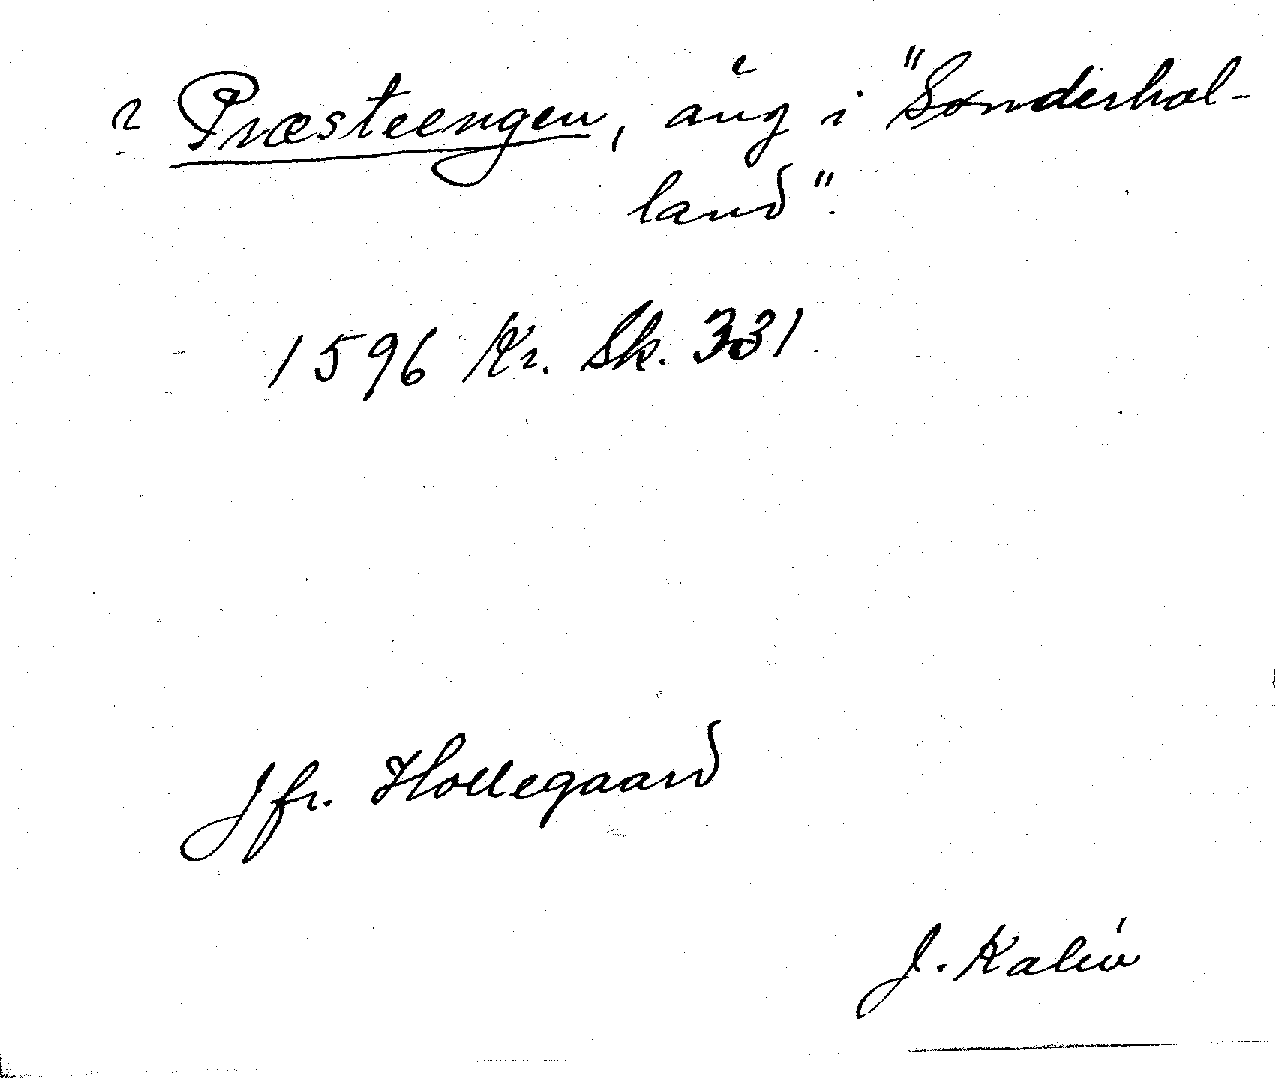 Præsteengen, äng i "Sønderhal-
land".
1596 Kr. Sk. 331
Jfr. Hollegaard
J. Kalén